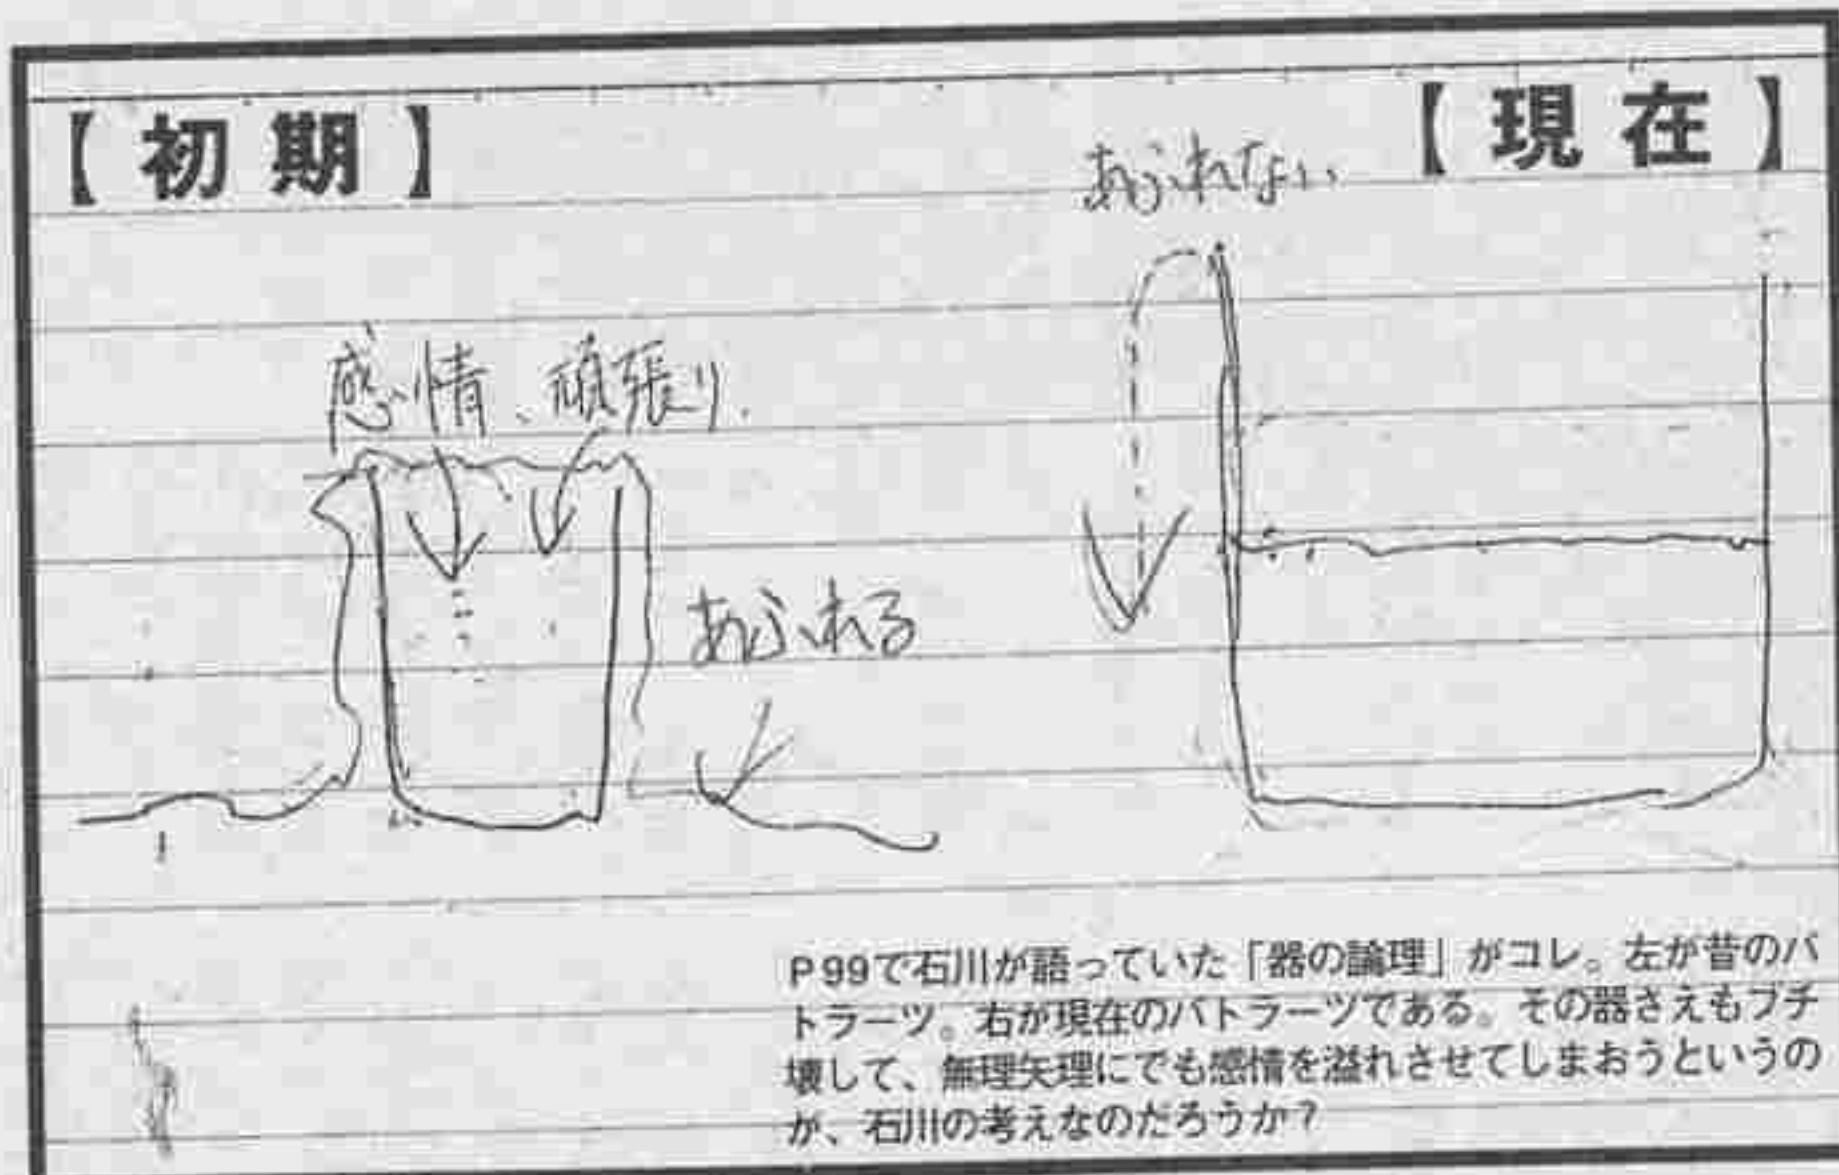 【初期】
【現在】
あふれない
感情、頑張り
あふれる
P99で石川が語っていた「器の論理」がコレ。左が昔のバ
トラーツ。右が現在のバトラーツである。その器さえもブチ
壊して、無理矢理にでも感情を溢れさせてしまおうというの
が、石川の考えなのだろうか?